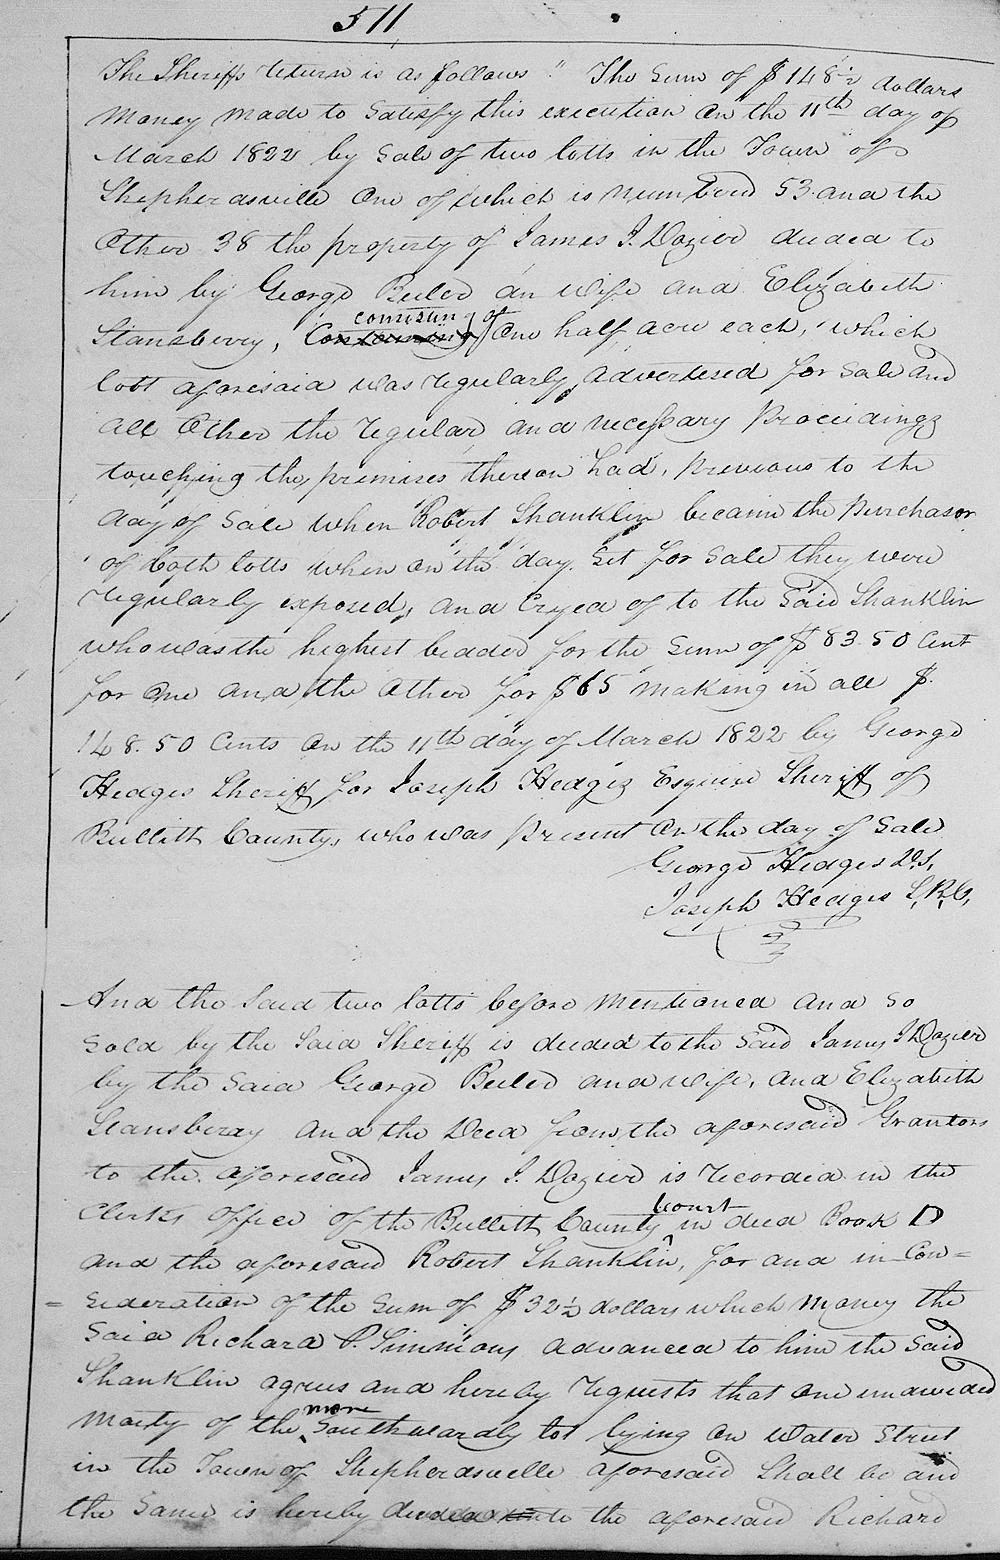 511
The Sheriffs return is as follows " The Sum of $ 148½ dollars
Money made to Satisfy this execution on the 11th day of
March 1822 by Sale of two lotts in the Town of
Shepherdsville One of which is numbered 53 and the
Other 38 the property of James I. Dozier deeded to
him by George Beeler an wife and Elizabeth
consisting of
Stansberry, Containing One half acre each, which
lott aforesaid was regularly advertised for Sale and
all Other the regular and necessary proceedings
touching the premises thereon had, previous to the
day of Sale when Robert Shanklin became the purchasor
of both lotts when on the day Set for Sale they were
regularly exposed, and Cryed of to the Said Shanklin
who was the highest beader for the Sum of $ 83.50 Cent
for One and the Other for $65 making in all $
148.50 Cents On the 11th day of March 1822 by George
Hedges Sheriff for Joseph Hedges Esquire Sheriff of
Bullitt County, who was present On the day of Sale
George Hedges D.S,
Joseph Hedges S,B,C,
And the Said two lotts before mentioned and So
Sold by the Said Sheriff is deeded to the Said James I Dozier
by the Said George Beeler and wife, and Elizabeth
Stansberry and the Deed from the aforesaid Grantors
to the aforesaid James I. Dozier is recorded in the
Court
Clerks office of the Bullitt County in deed Book D
and the aforesaid Robert Shanklin, for and in Con=
=sideration of the Sum of $ 32½ dollars which Money the
Said Richard P. Simmons advanced to him the Said
Shanklin agrees and hereby requests that one undivided
more
Moity of the Southwardly lot lying on Water Street
in the Town of Shepherdsvelle aforesaid Shall be and
the Same is hereby deeded to the aforesaid Richard